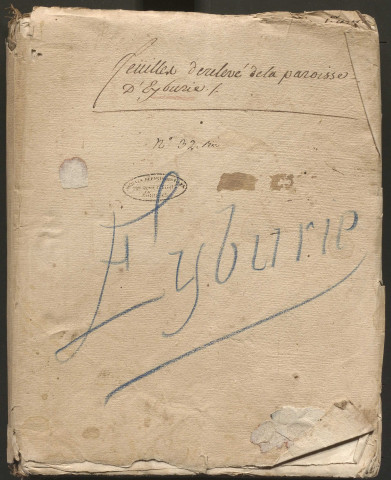 feuilles de relevé de la paroisse
D'Eyburie /.
N° 32
Eyburie